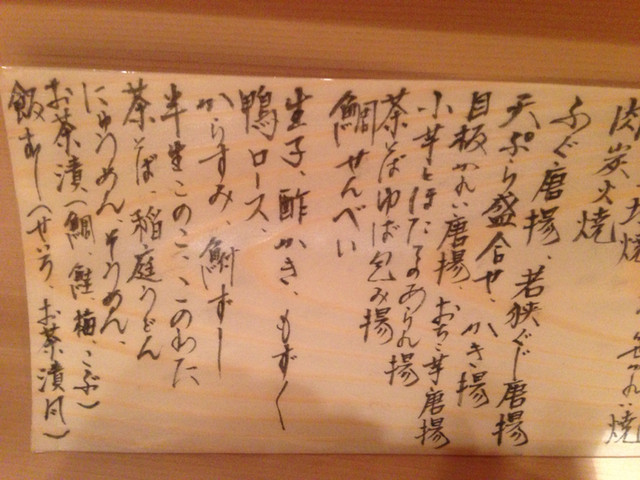 炭火焼
ふぐ唐揚、若狭ぐじ唐揚
天ぷら盛合せ、かき揚
目板かれい唐揚 おちご芋唐揚
小芋とほたるのあられ揚
茶そばゆば包み揚
鯛せんべい
生子、酢かき、もずく
鴨ロース、
からすみ、鮒ずし
半生このこ、このわた
茶そば、稲庭うどん
にゅうめん、そうめん、
お茶漬(鯛、鮭、梅、こぶ)
飯むし(せいろ、お茶漬風)